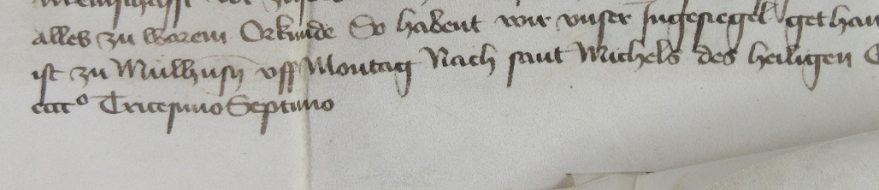 alles zu warem Orkunde So habent wir unser Ingesiegel gethan
ist zu Mulhusen uff Montag Nach sant Michels des heiligen
cccc° Tricesimo Septimo